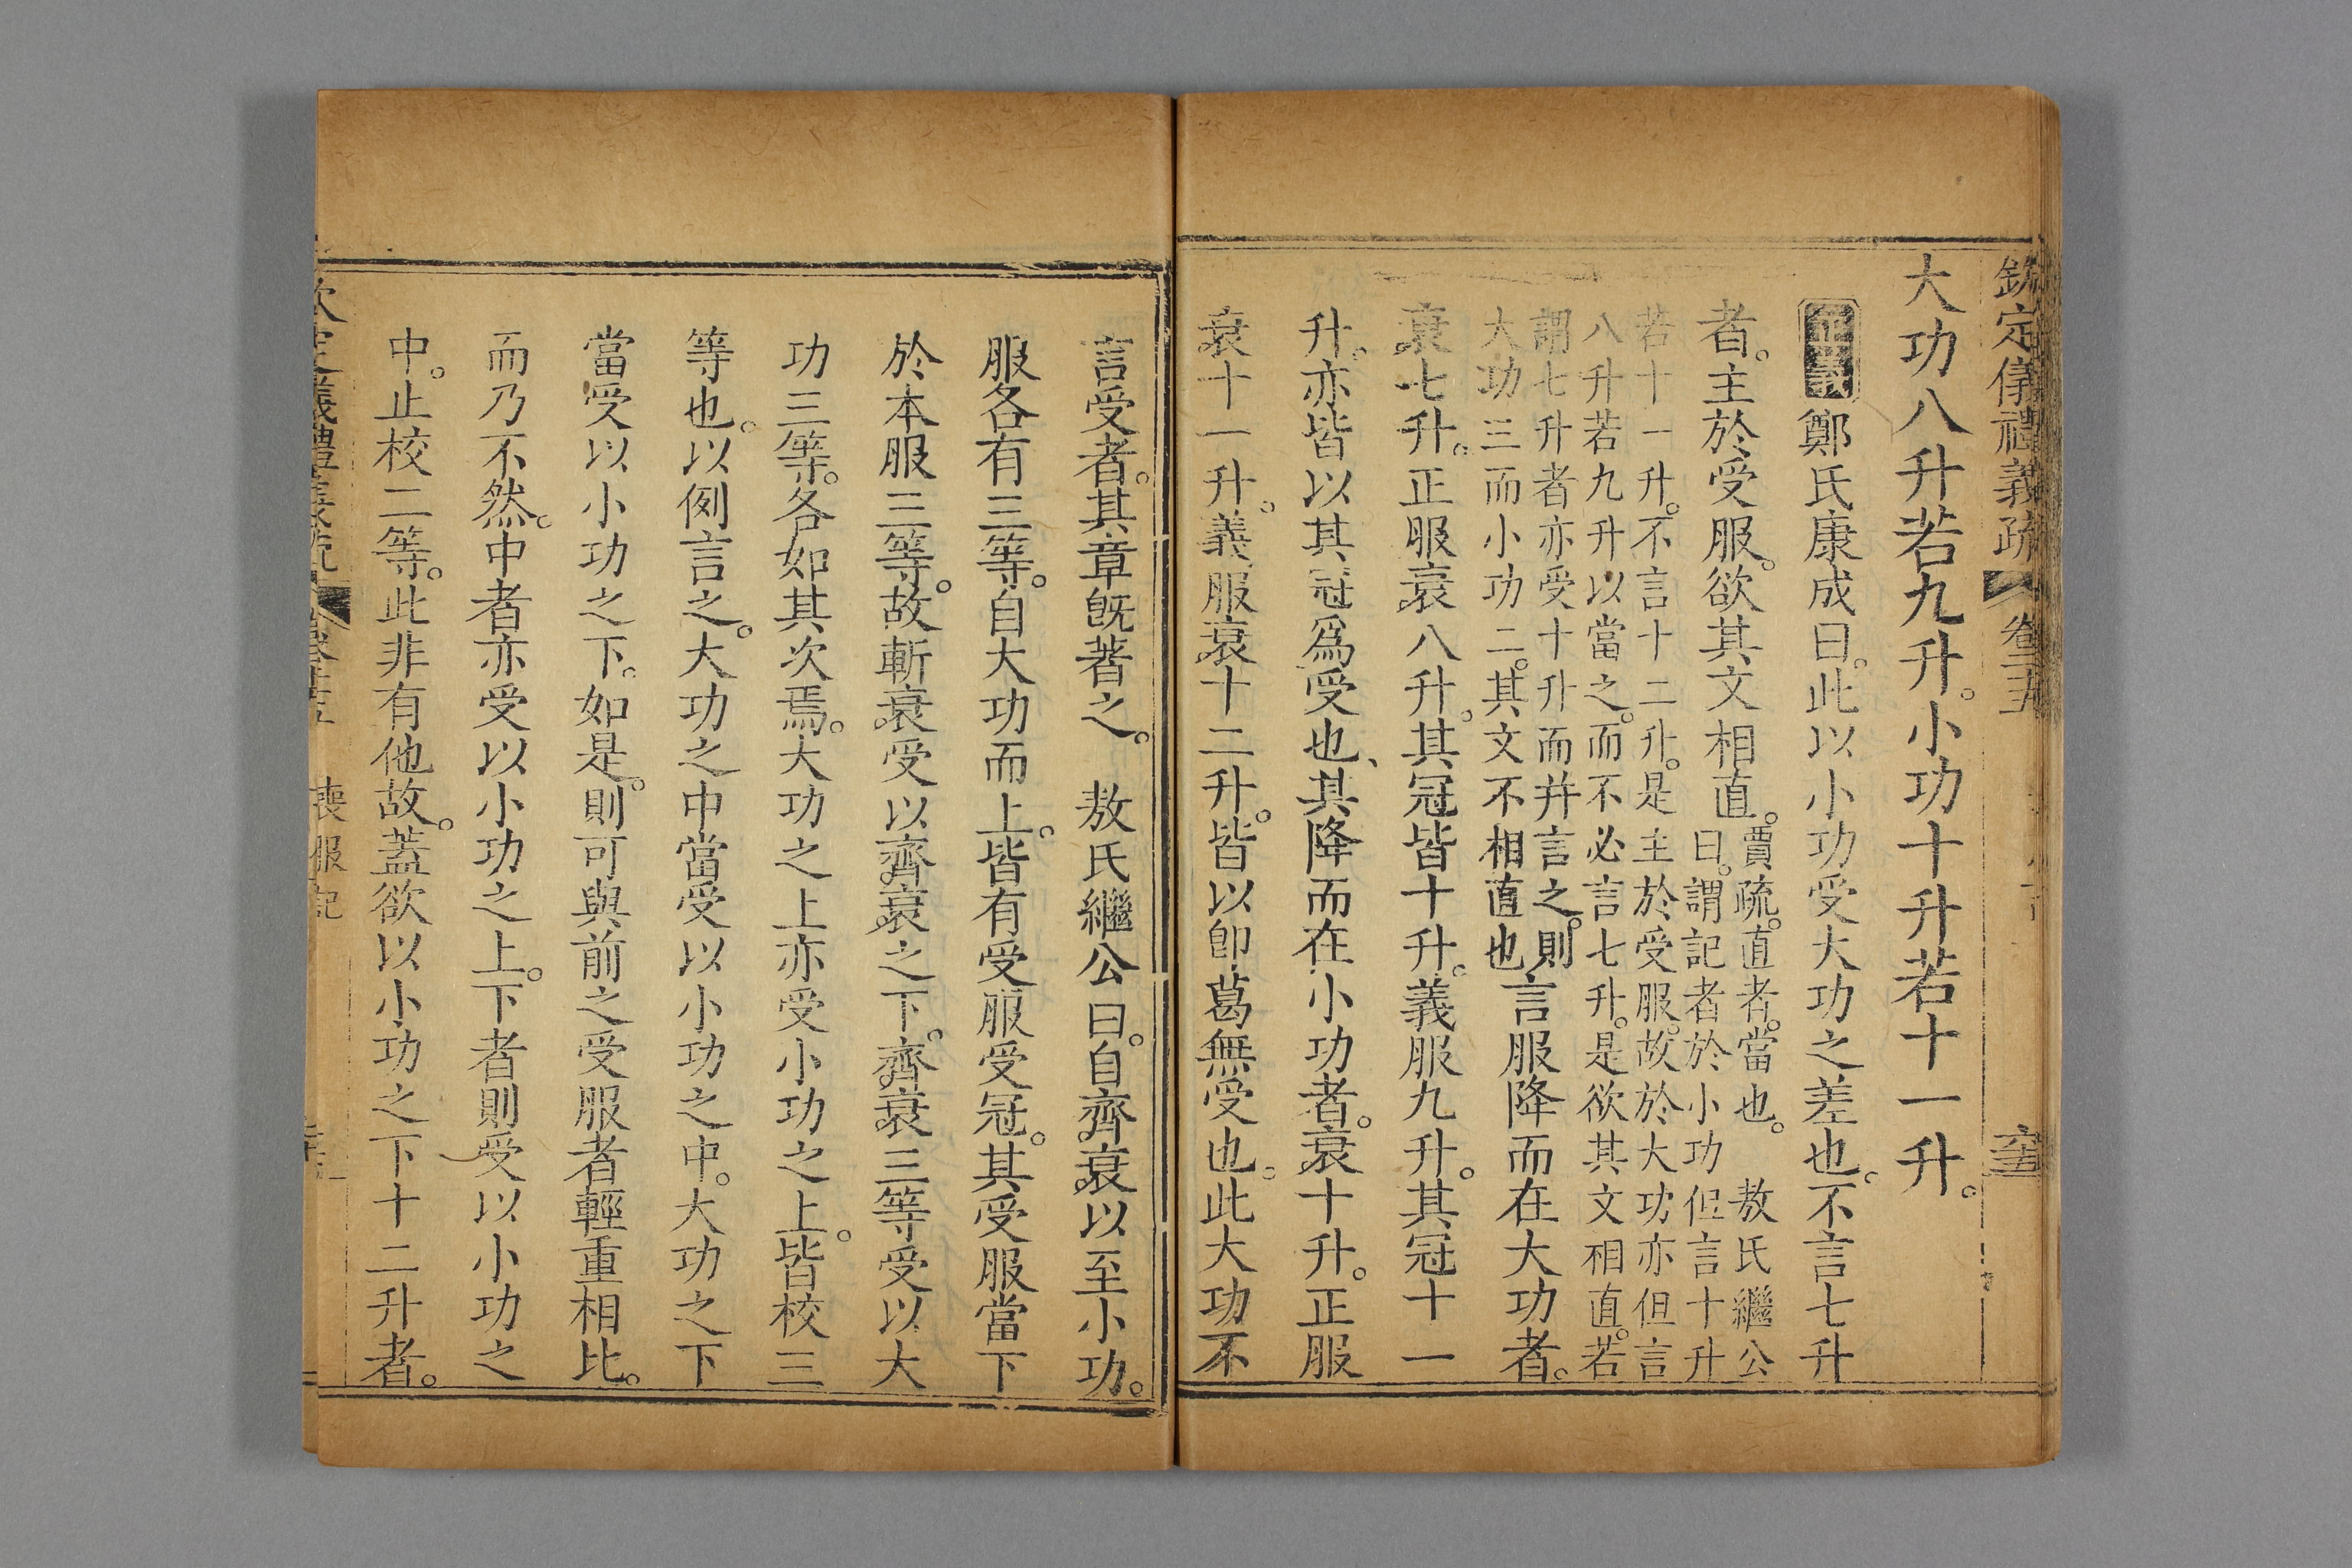 欽定儀禮義疏 卷二十五
大功八升若九升。小功十升若十一升。
正義鄭氏康成曰。此以小功受大功之差也。不言七升
者。主於受服。欲其文相直。
賈疏。直者。當也。 敖氏繼公
曰。謂記者於小功但言十升
若十一升。不言十二升。是主於受服。故於大功亦但言
八升若九升以當之。而不必言七升。是欲其文相直。若
謂七升者亦受十升而幷言之。則
大功三而小功二。其文不相直也
言服降而在大功者。
衰七升。正服衰八升。其冠皆十升。義服九升。其冠十一
升。亦皆以其冠爲受也、其降而在小功者。衰十升。正服
衰十一升。義服衰十二升。皆以卽葛無受也。此大功不
言受者。其章旣著之。 敖氏繼公曰。自齊衰以至小功。
服各有三等。自大功而上。皆有受服受冠。其受服當下
於本服三等。故斬衰受以齊衰之下。齊衰三等受以大
功三等。各如其次焉。大功之上亦受小功之上。皆校三
等也。以例言之。大功之中當受以小功之中。大功之下
當受以小功之下。如是。則可與前之受服者輕重相比。
而乃不然。中者亦受以小功之上。下者則受以小功之
中。止校二等。此非有他故。蓋欲以小功之下十二升者。
喪服記